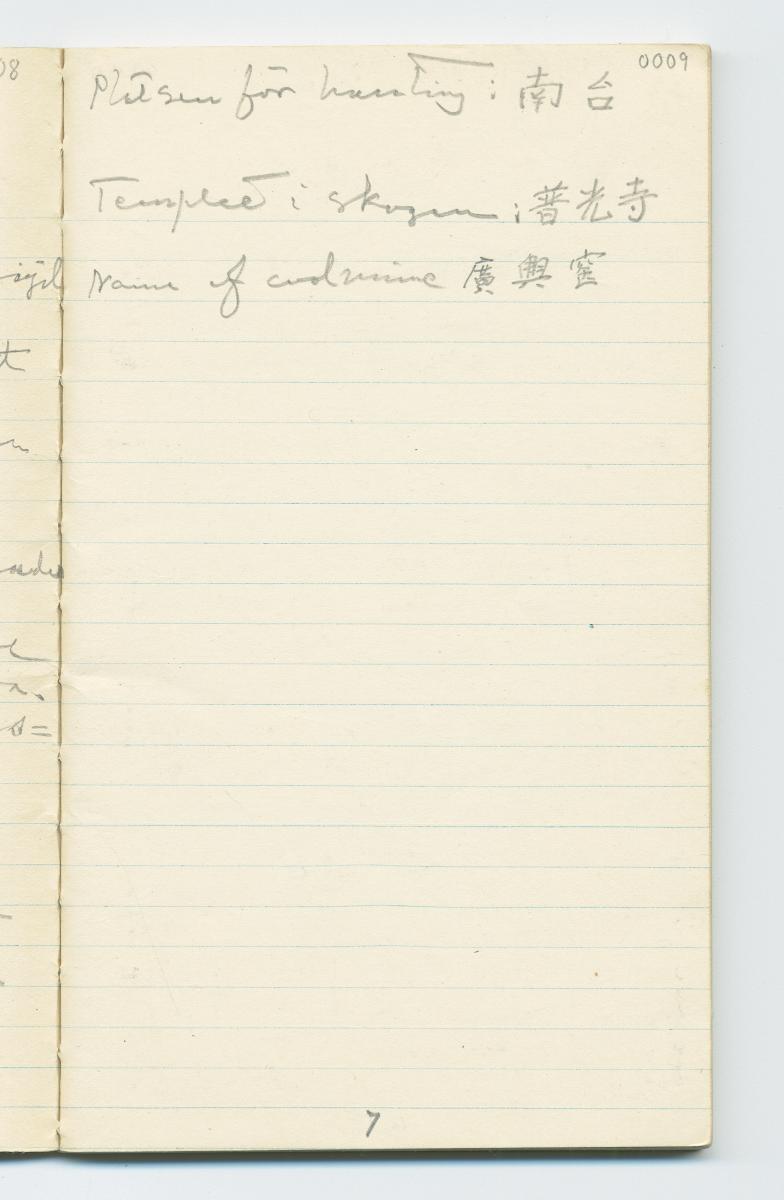 0009
Platsen för hamting : 南台
Templet i skogen ; 普光寺
Name of coal mine 廣興窰
7
08
t
s=